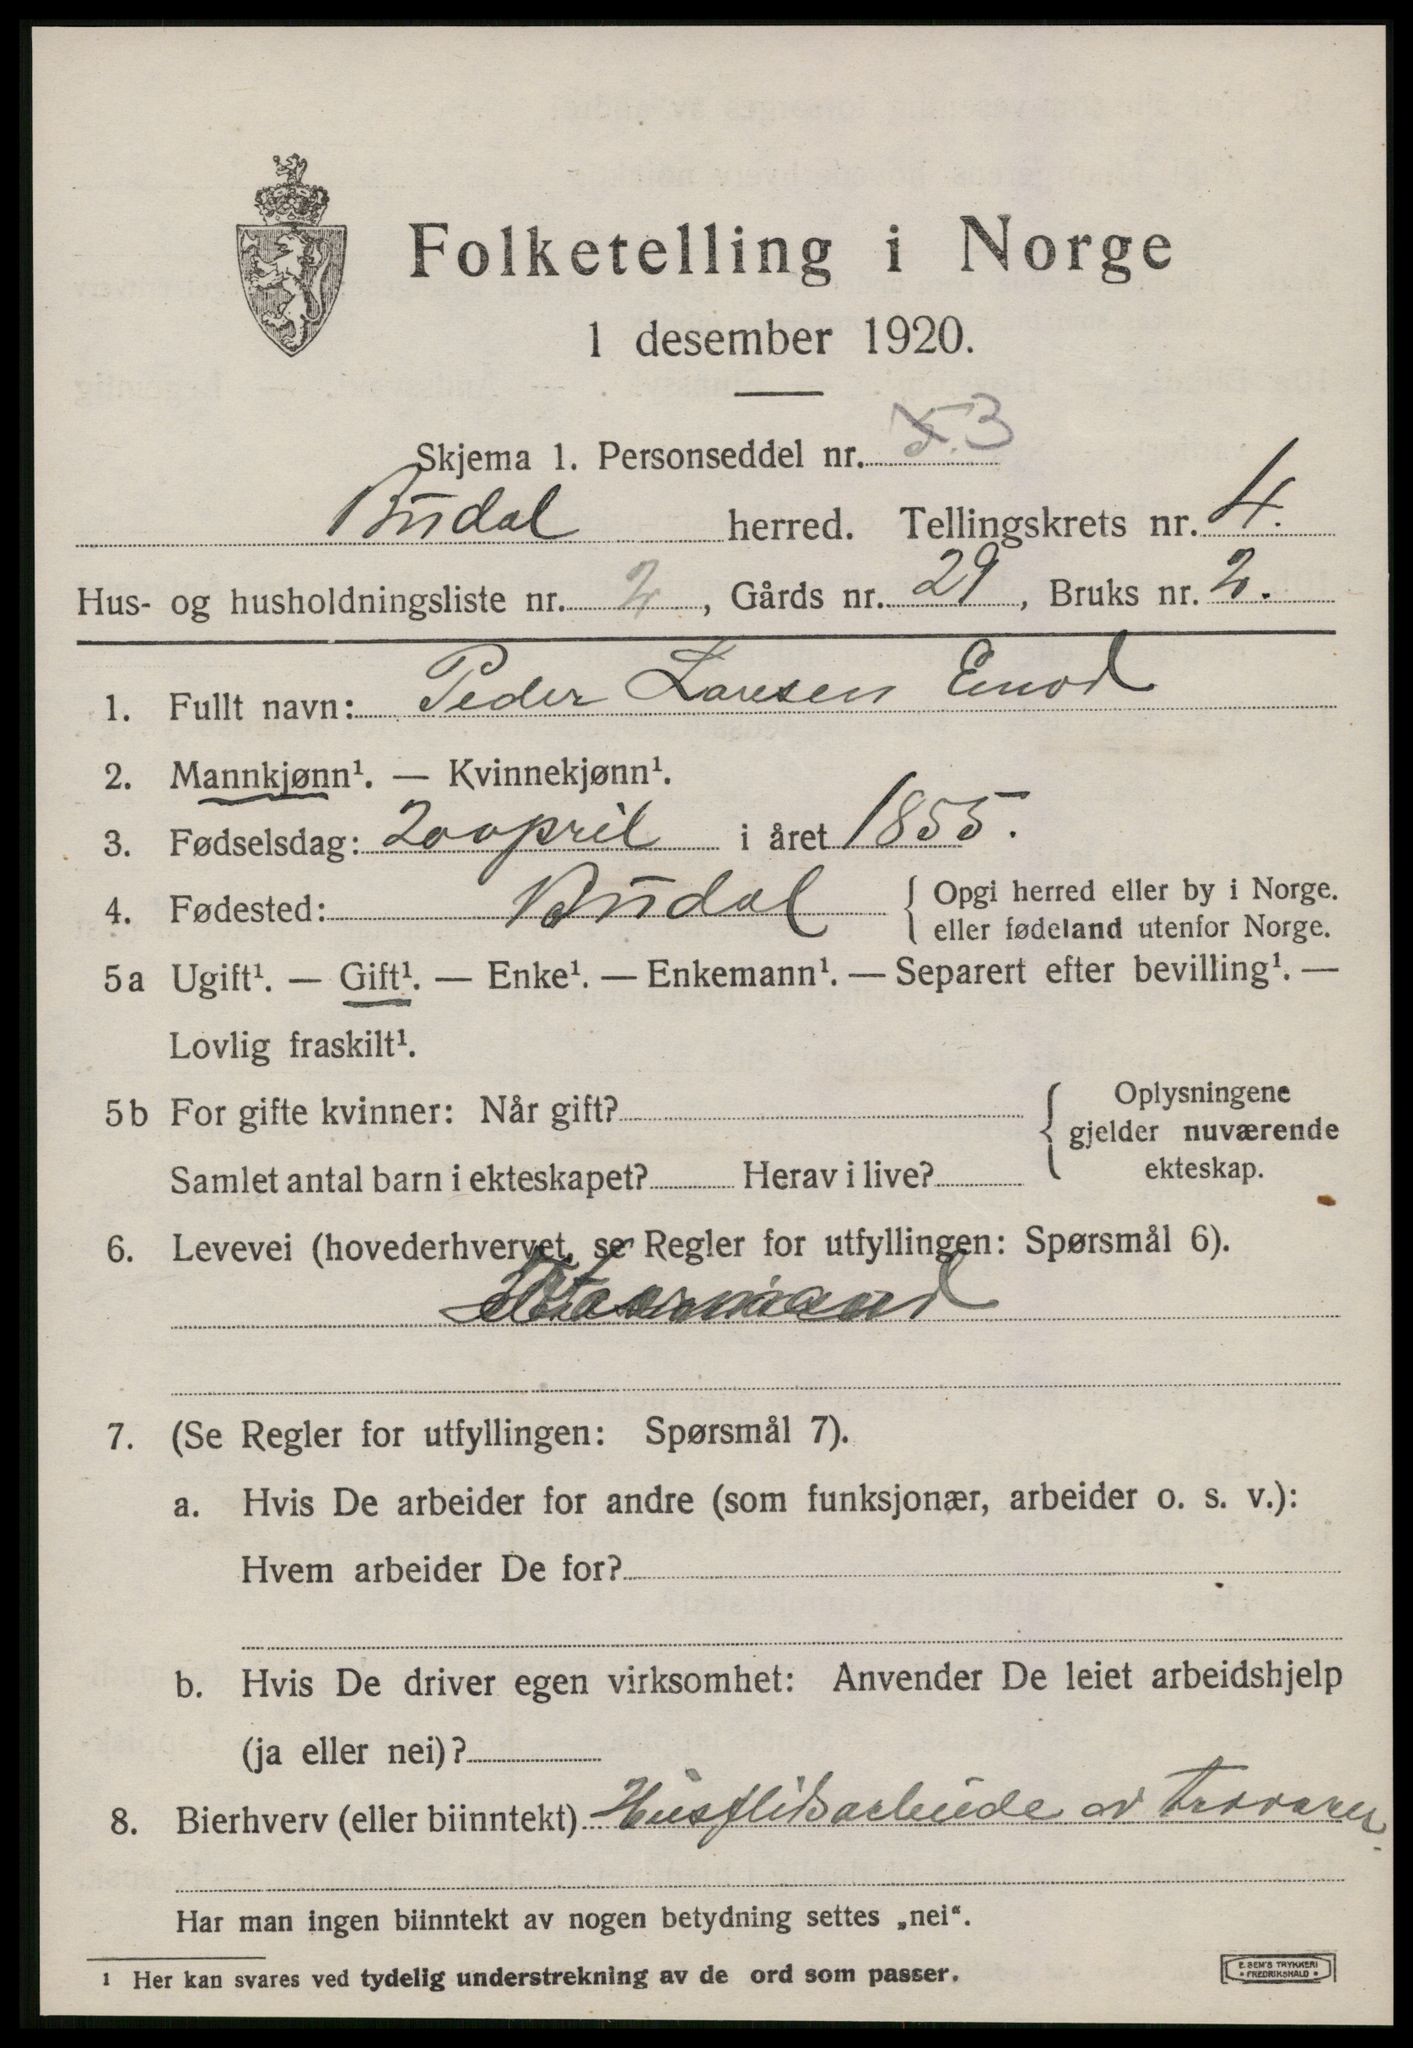 Folketelling i Norge
1 desember 1920.
Skjema 1. Personseddel nr. 3
Budal herred. Tellingskrets nr. 4.
Hus- og husholdningsliste nr. 2, Gårds nr. 29, Bruks nr. 2.
1. Fullt navn: Peder Larsen Enod
2. Mannkjønn¹. — Kvinnekjønn¹.
3. Fødselsdag: 20 april i året 1855.
4. Fødested: Budal { Opgi herred eller by i Norge.
eller fødeland utenfor Norge.
5a Ugift¹. — Gift¹. — Enke¹. — Enkemann¹. — Separert efter bevilling¹. —
Lovlig fraskilt¹.
5b For gifte kvinner: Når gift? { Oplysningene
gjelder nuværende
Samlet antal barn i ekteskapet? Herav i live? ekteskap.
6. Levevei (hovederhvervet, se Regler for utfyllingen: Spørsmål 6).
7. (Se Regler for utfyllingen: Spørsmål 7).
a. Hvis De arbeider for andre (som funksjonær, arbeider o. s. v.):
Hvem arbeider De for?
b. Hvis De driver egen virksomhet: Anvender De leiet arbeidshjelp
(ja eller nei)?
8. Bierhverv (eller biinntekt) Husflidsarbeide av trævarer
Har man ingen biinntekt av nogen betydning settes „nei“.
1 Her kan svares ved tydelig understrekning av de ord som passer.
E. SEM'S TRYKKERI
FREDRIKSHALD